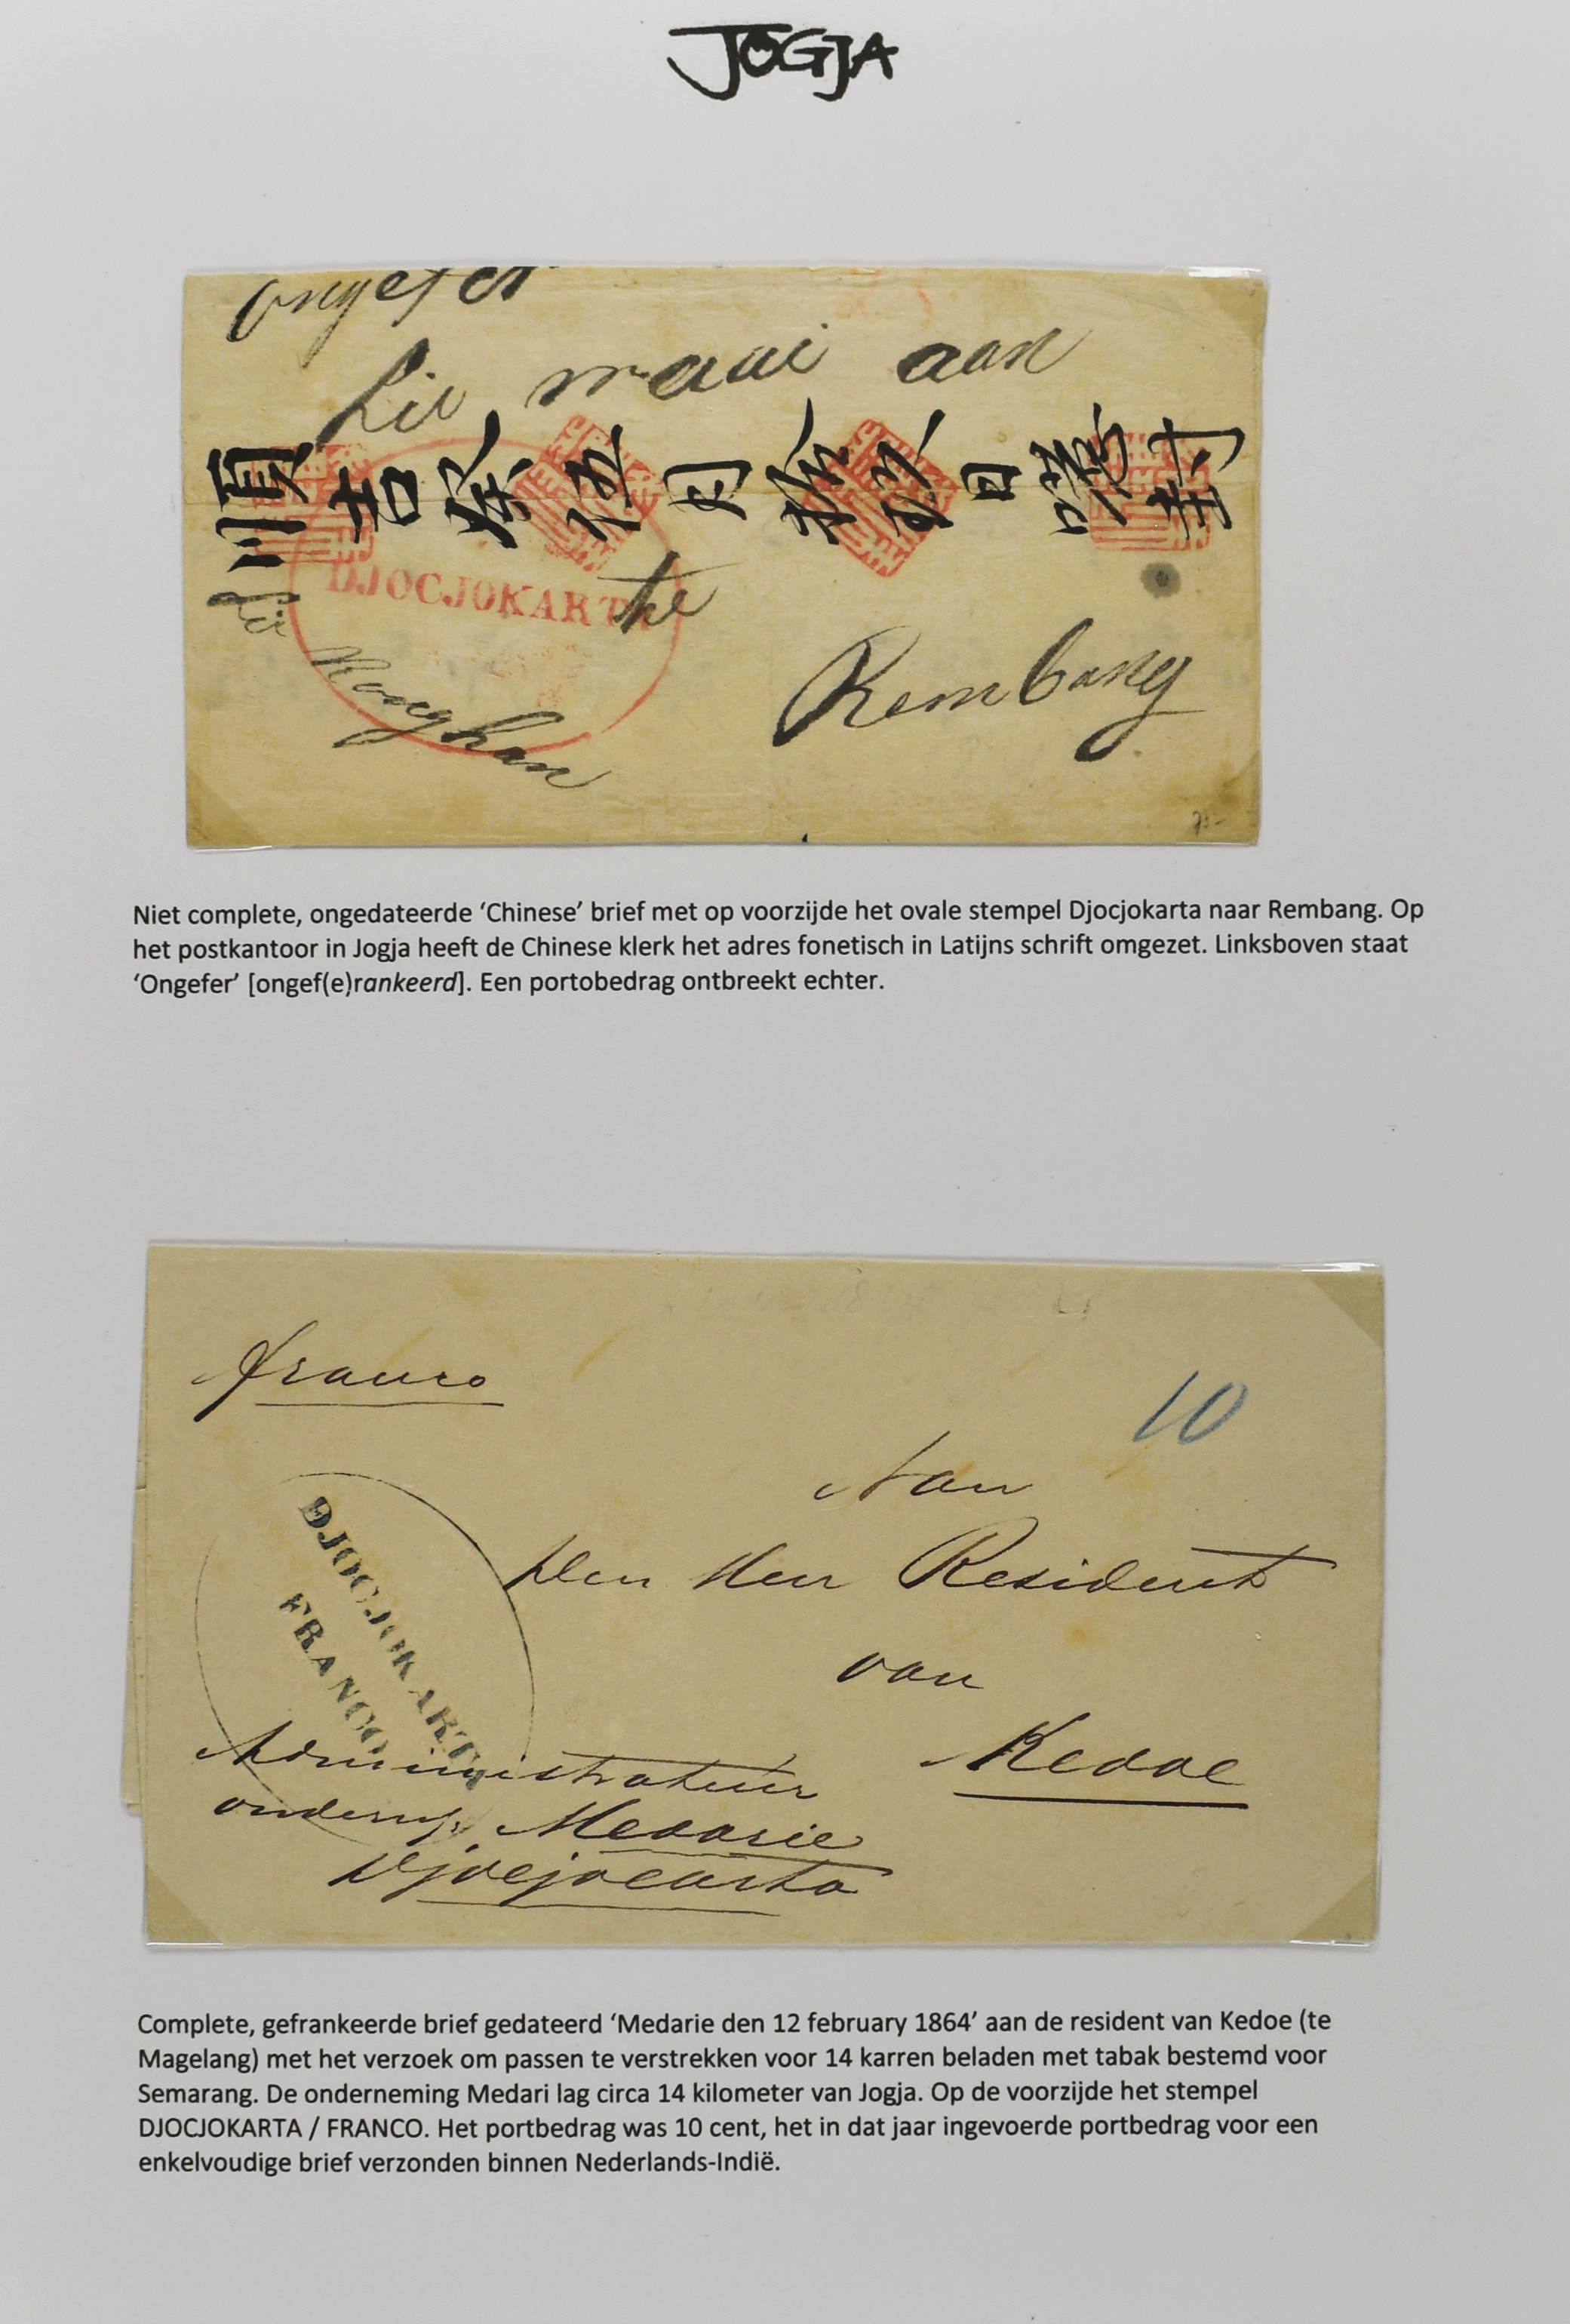 JOGJA
ongefer
Lie maai aan
DJOCJOKARTA
te
Lie
Rembang
Konghan
75-
Niet complete, ongedateerde ‘Chinese’ brief met op voorzijde het ovale stempel Djocjokarta naar Rembang. Op
het postkantoor in Jogja heeft de Chinese klerk het adres fonetisch in Latijns schrift omgezet. Linksboven staat
‘Ongefer’ [ongef(e)rankeerd]. Een portobedrag ontbreekt echter.
franco
10
Aan
Den Heer Resident
van
Kedoe
DJOCJOKARTA
FRANCO
Administrateur
onderng. Medarie
Djocjocarta
Complete, gefrankeerde brief gedateerd ‘Medarie den 12 february 1864’ aan de resident van Kedoe (te
Magelang) met het verzoek om passen te verstrekken voor 14 karren beladen met tabak bestemd voor
Semarang. De onderneming Medari lag circa 14 kilometer van Jogja. Op de voorzijde het stempel
DJOCJOKARTA / FRANCO. Het portbedrag was 10 cent, het in dat jaar ingevoerde portbedrag voor een
enkelvoudige brief verzonden binnen Nederlands-Indië.